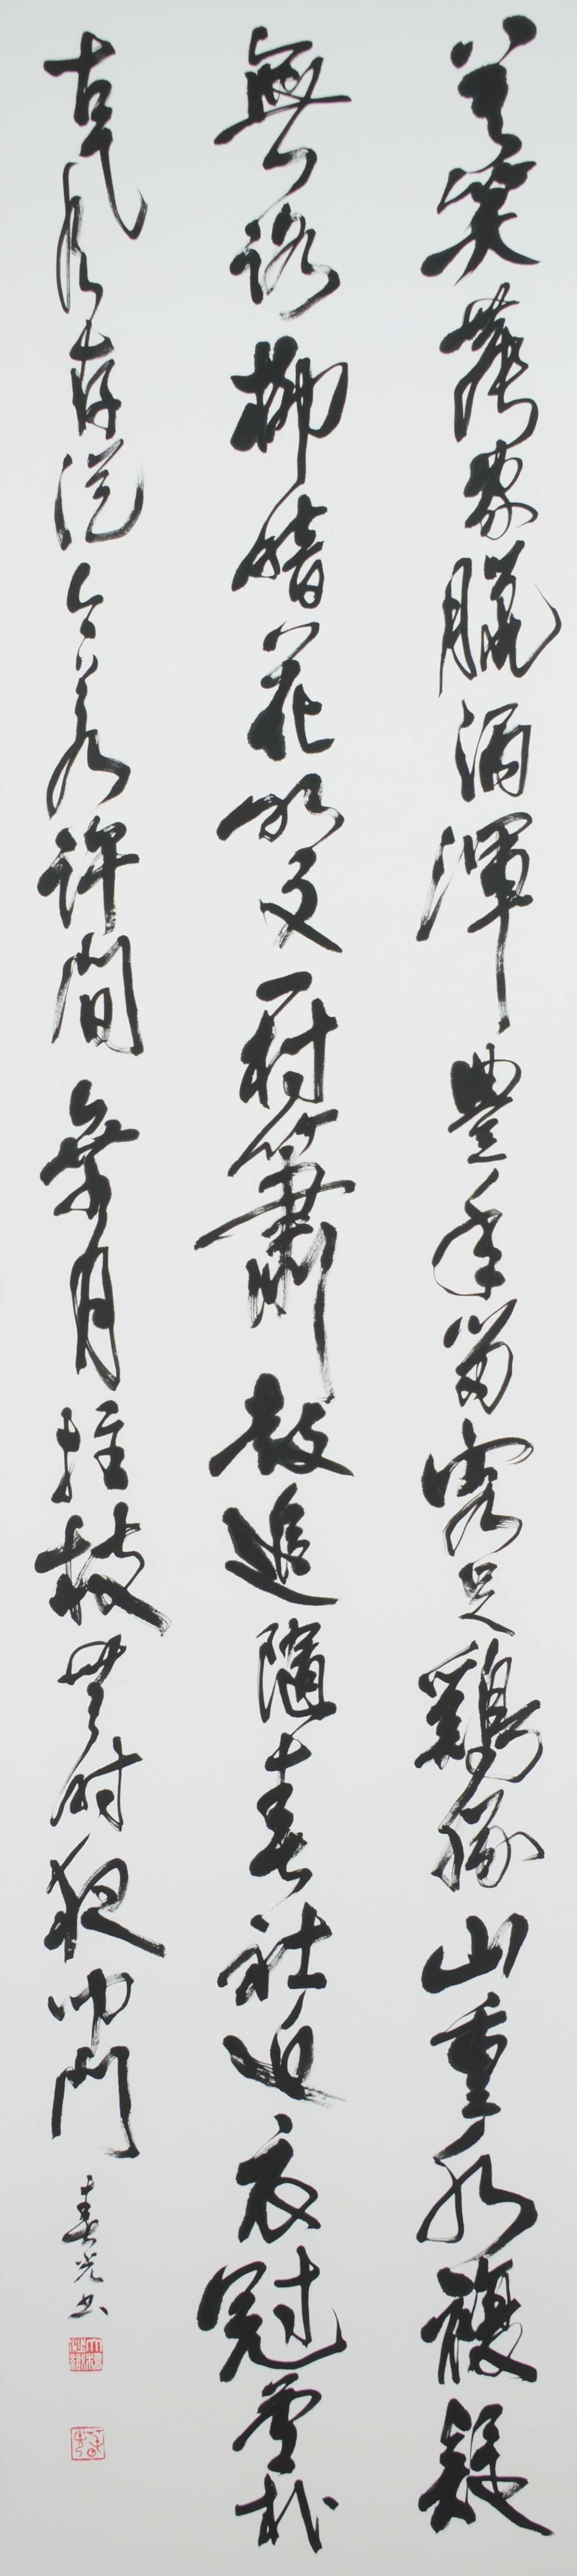 莫笑農家臘酒渾豊年留客足鷄豚山重水複疑
無路柳暗花明又一村簫鼓追隨春社近衣冠簡朴
古風存従今若許間乗月拄杖無時夜叩門
春光書